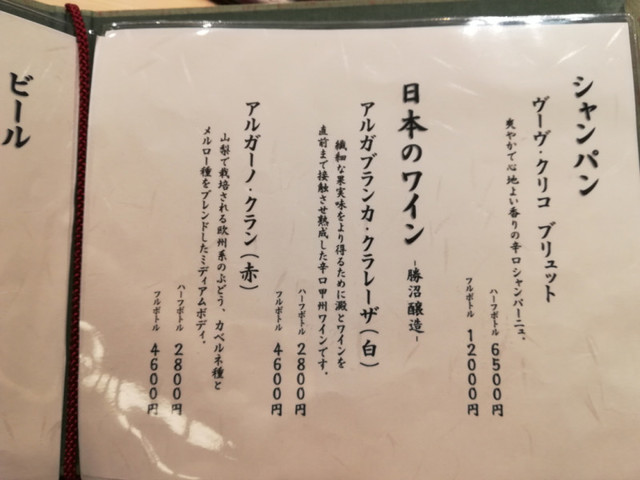 シャンパン
ヴーヴ・クリコ ブリュット
爽やかで心地よい香りの辛口シャンパーニュ。
ハーフボトル 6500円
フルボトル 12000円
日本のワイン -勝沼醸造-
アルガブランカ・クラレーザ(白)
繊細な果実味をより得るために澱とワインを
直前まで接触させ熟成した辛口甲州ワインです。
ハーフボトル 2800円
フルボトル 4600円
アルガーノ・クラン(赤)
山梨で栽培される欧州系のぶどう、カベルネ種と
メルロー種をブレンドしたミディアムボディ。
ハーフボトル 2800円
フルボトル 4600円
ビール